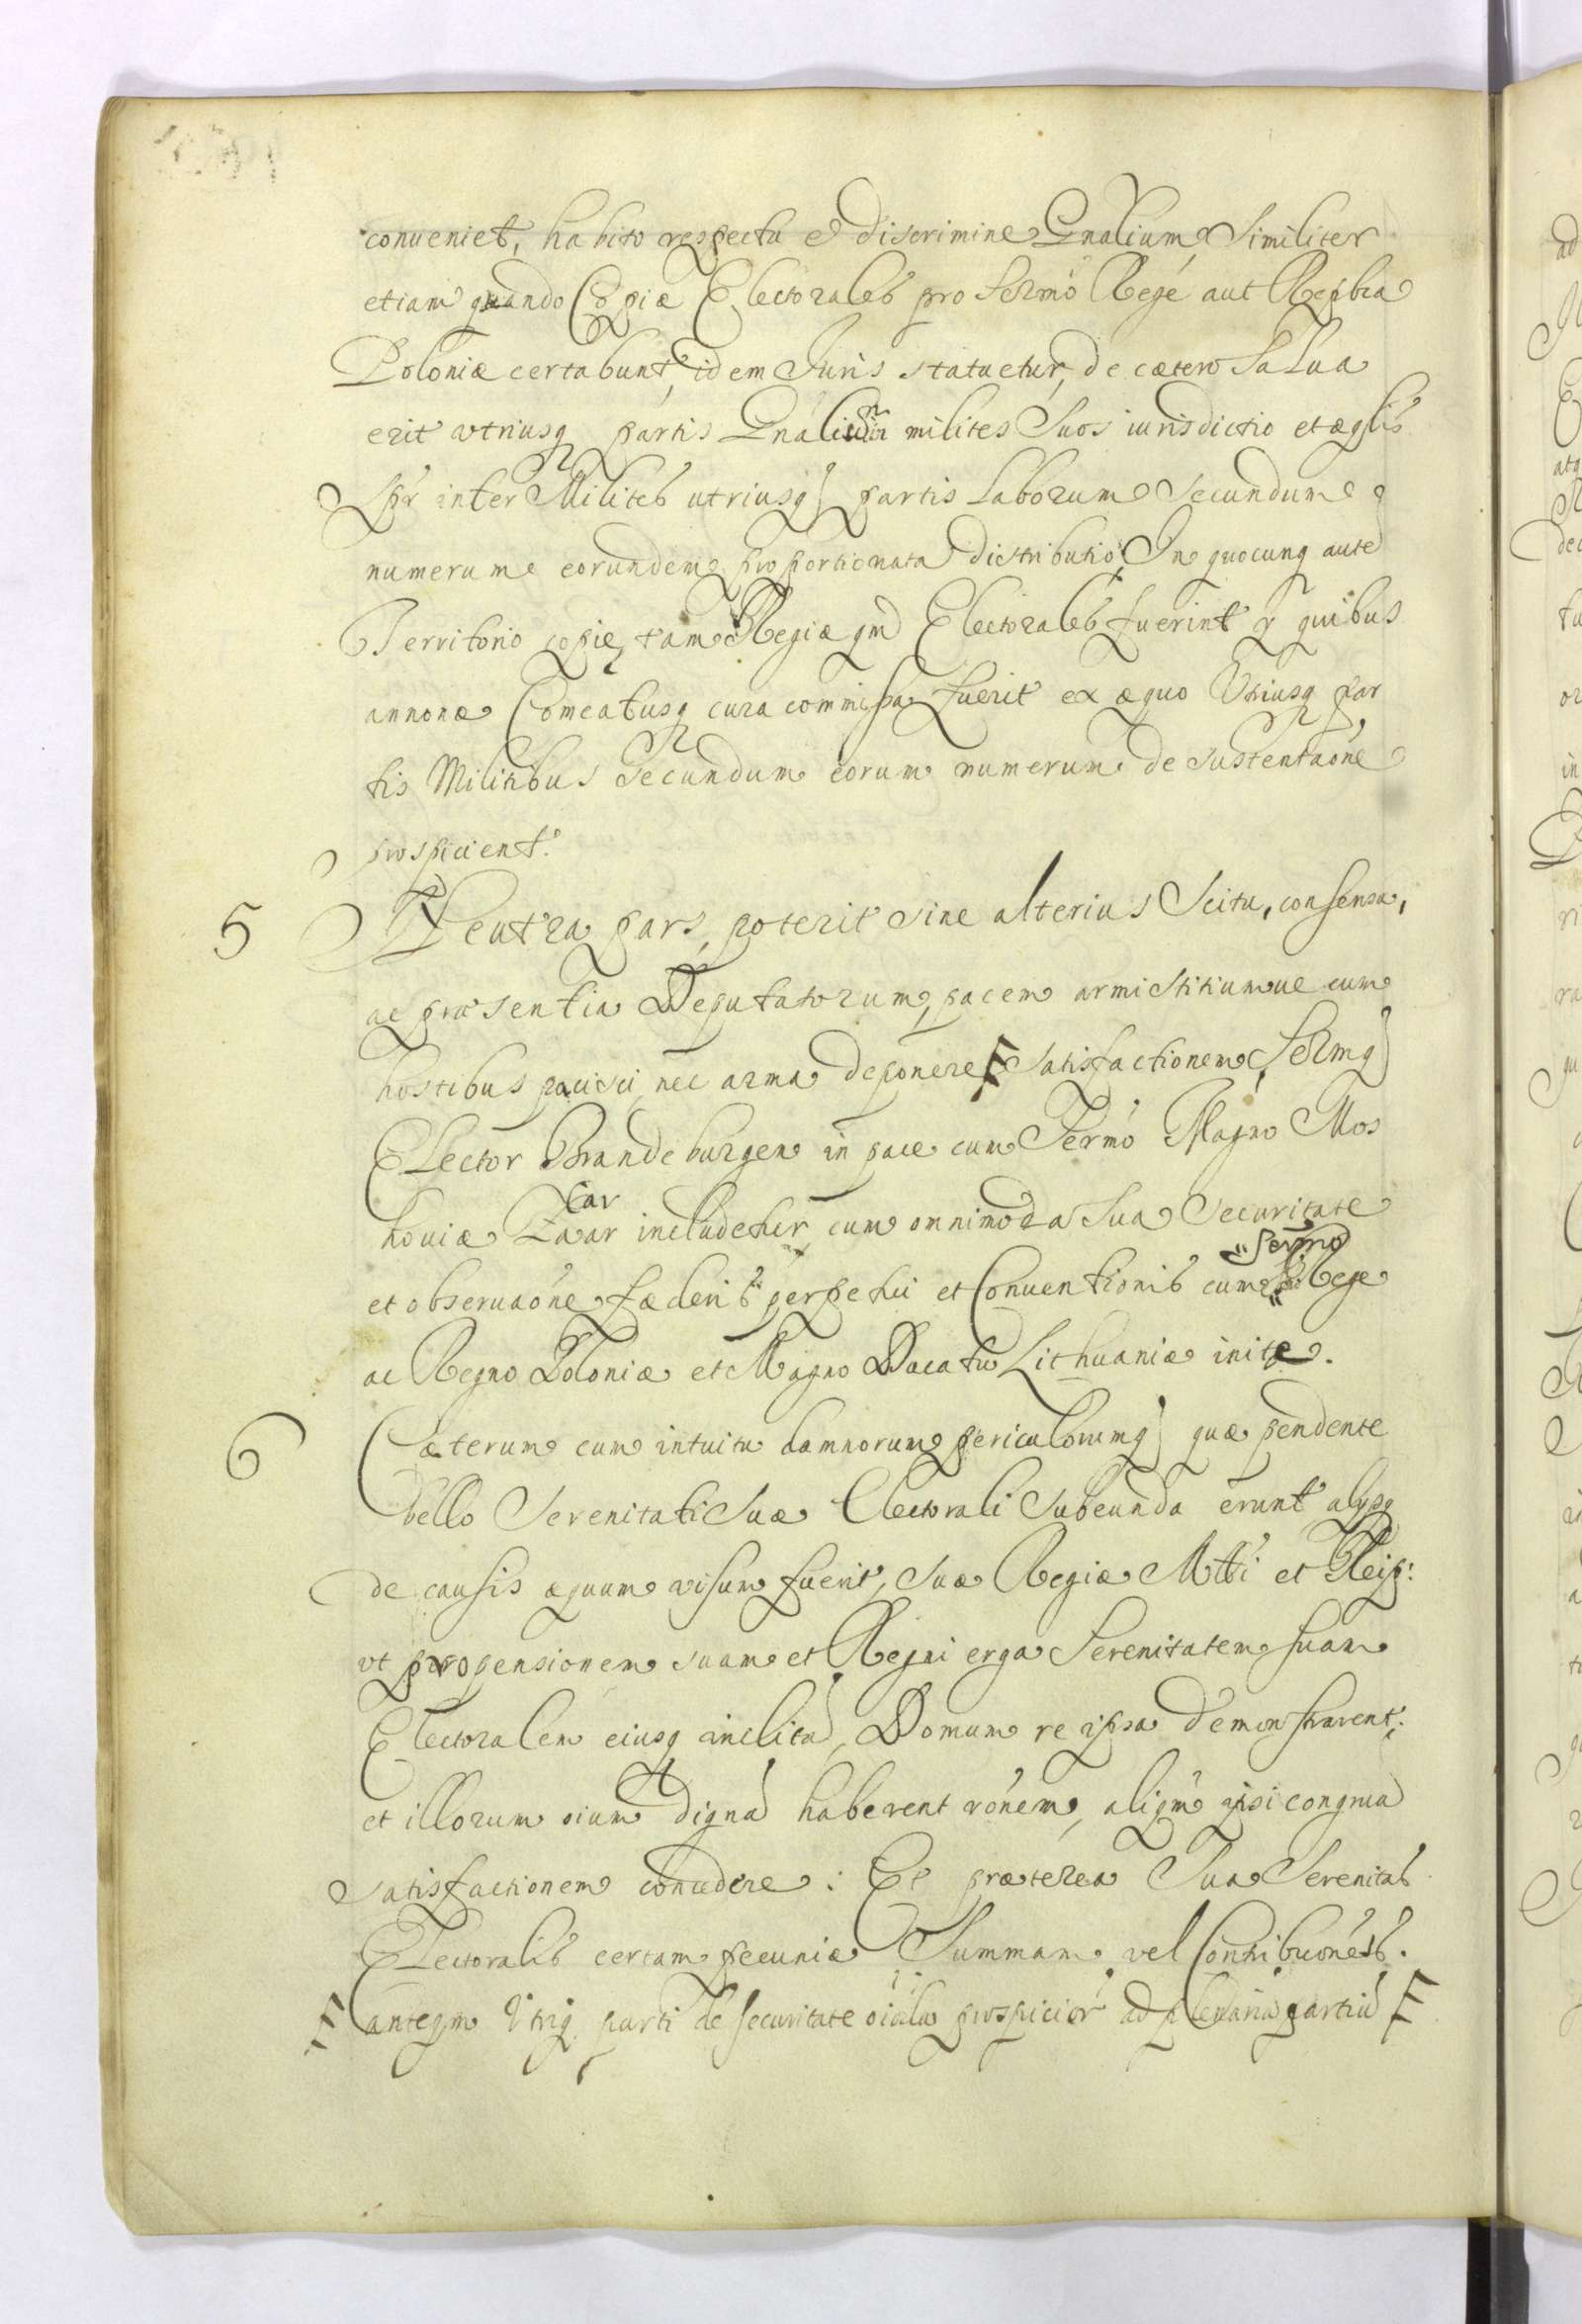 conueniet, habito respectu et discrimine Gnalium, Similiter
etiam quando Copiæ Electorales pro Sermo Rege aut Repbca
Poloniæ certabunt, idem Juris statuetur, de cætero Salua
erit vtriusq partis Gnaliu in milites Suos iurisdictio et æqlis
Spr inter Milites utriusq partis Laborum Secundum
numerum eorundem proportionata distributio, In quocunq aute
Territorio copiæ, tam Regiæ qm Electorales fuerint ij quibus
annonæ Comeatusq cura commissa fuerit ex æquo Vtriusq par
tis Militibus Secundum eorum numerum de Sustentaone
prospicient.
5 Neutra pars, poterit sine alterius Scitu, consensu,
ac præsentia Deputatorum, pacem armistitiumue cum
hostibus pacisci, nec arma deponere F Satisfactionem, Sermq
Elector Brandeburgen in pace cum Sermo Magno Mos
car
houiæ Zaar includetur cum omnimoda Sua Securitate
" Sermo
et obseruaone fæderis perpetui et Conuentionis cum Rege
ac Regno Poloniæ et Magno Ducatu Lithuaniæ initæ.
6 Cæterum cum intuitu damnorum periculorumq quæ pendente
bello Serenitati Suæ Electorali Subeunda erunt alijsq
de causis æquum visum fuerit, Suæ Regiæ Mtti et Reip:
vt propensionem suam et Regni erga Serenitatem Suam
Electoralem eiusq inclita, Domum re ipsa demonstrarent;
et illorum oium digna haberent ronem, aliqm ipsi congrua
Satisfactionem concedere: Et præterea Sua Serenitas
Electoralis certam pecuniæ Summam vel Contribuones.
F anteqm Vtriq parti de securitate prospicior ad plenaria partiu F